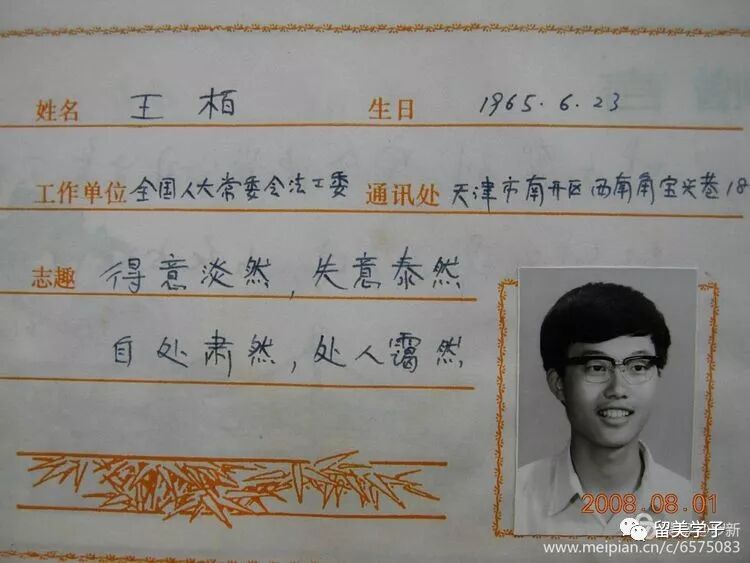 姓名 王柏 生日 1965.6.23
工作单位 全国人大常委会法工委 通讯处 天津市南开区西南角宝兴巷18
志趣 得意淡然，失意泰然
自处肃然，处人霭然
2008.08.01
留美学子
www.meipian.cn/c/6575083